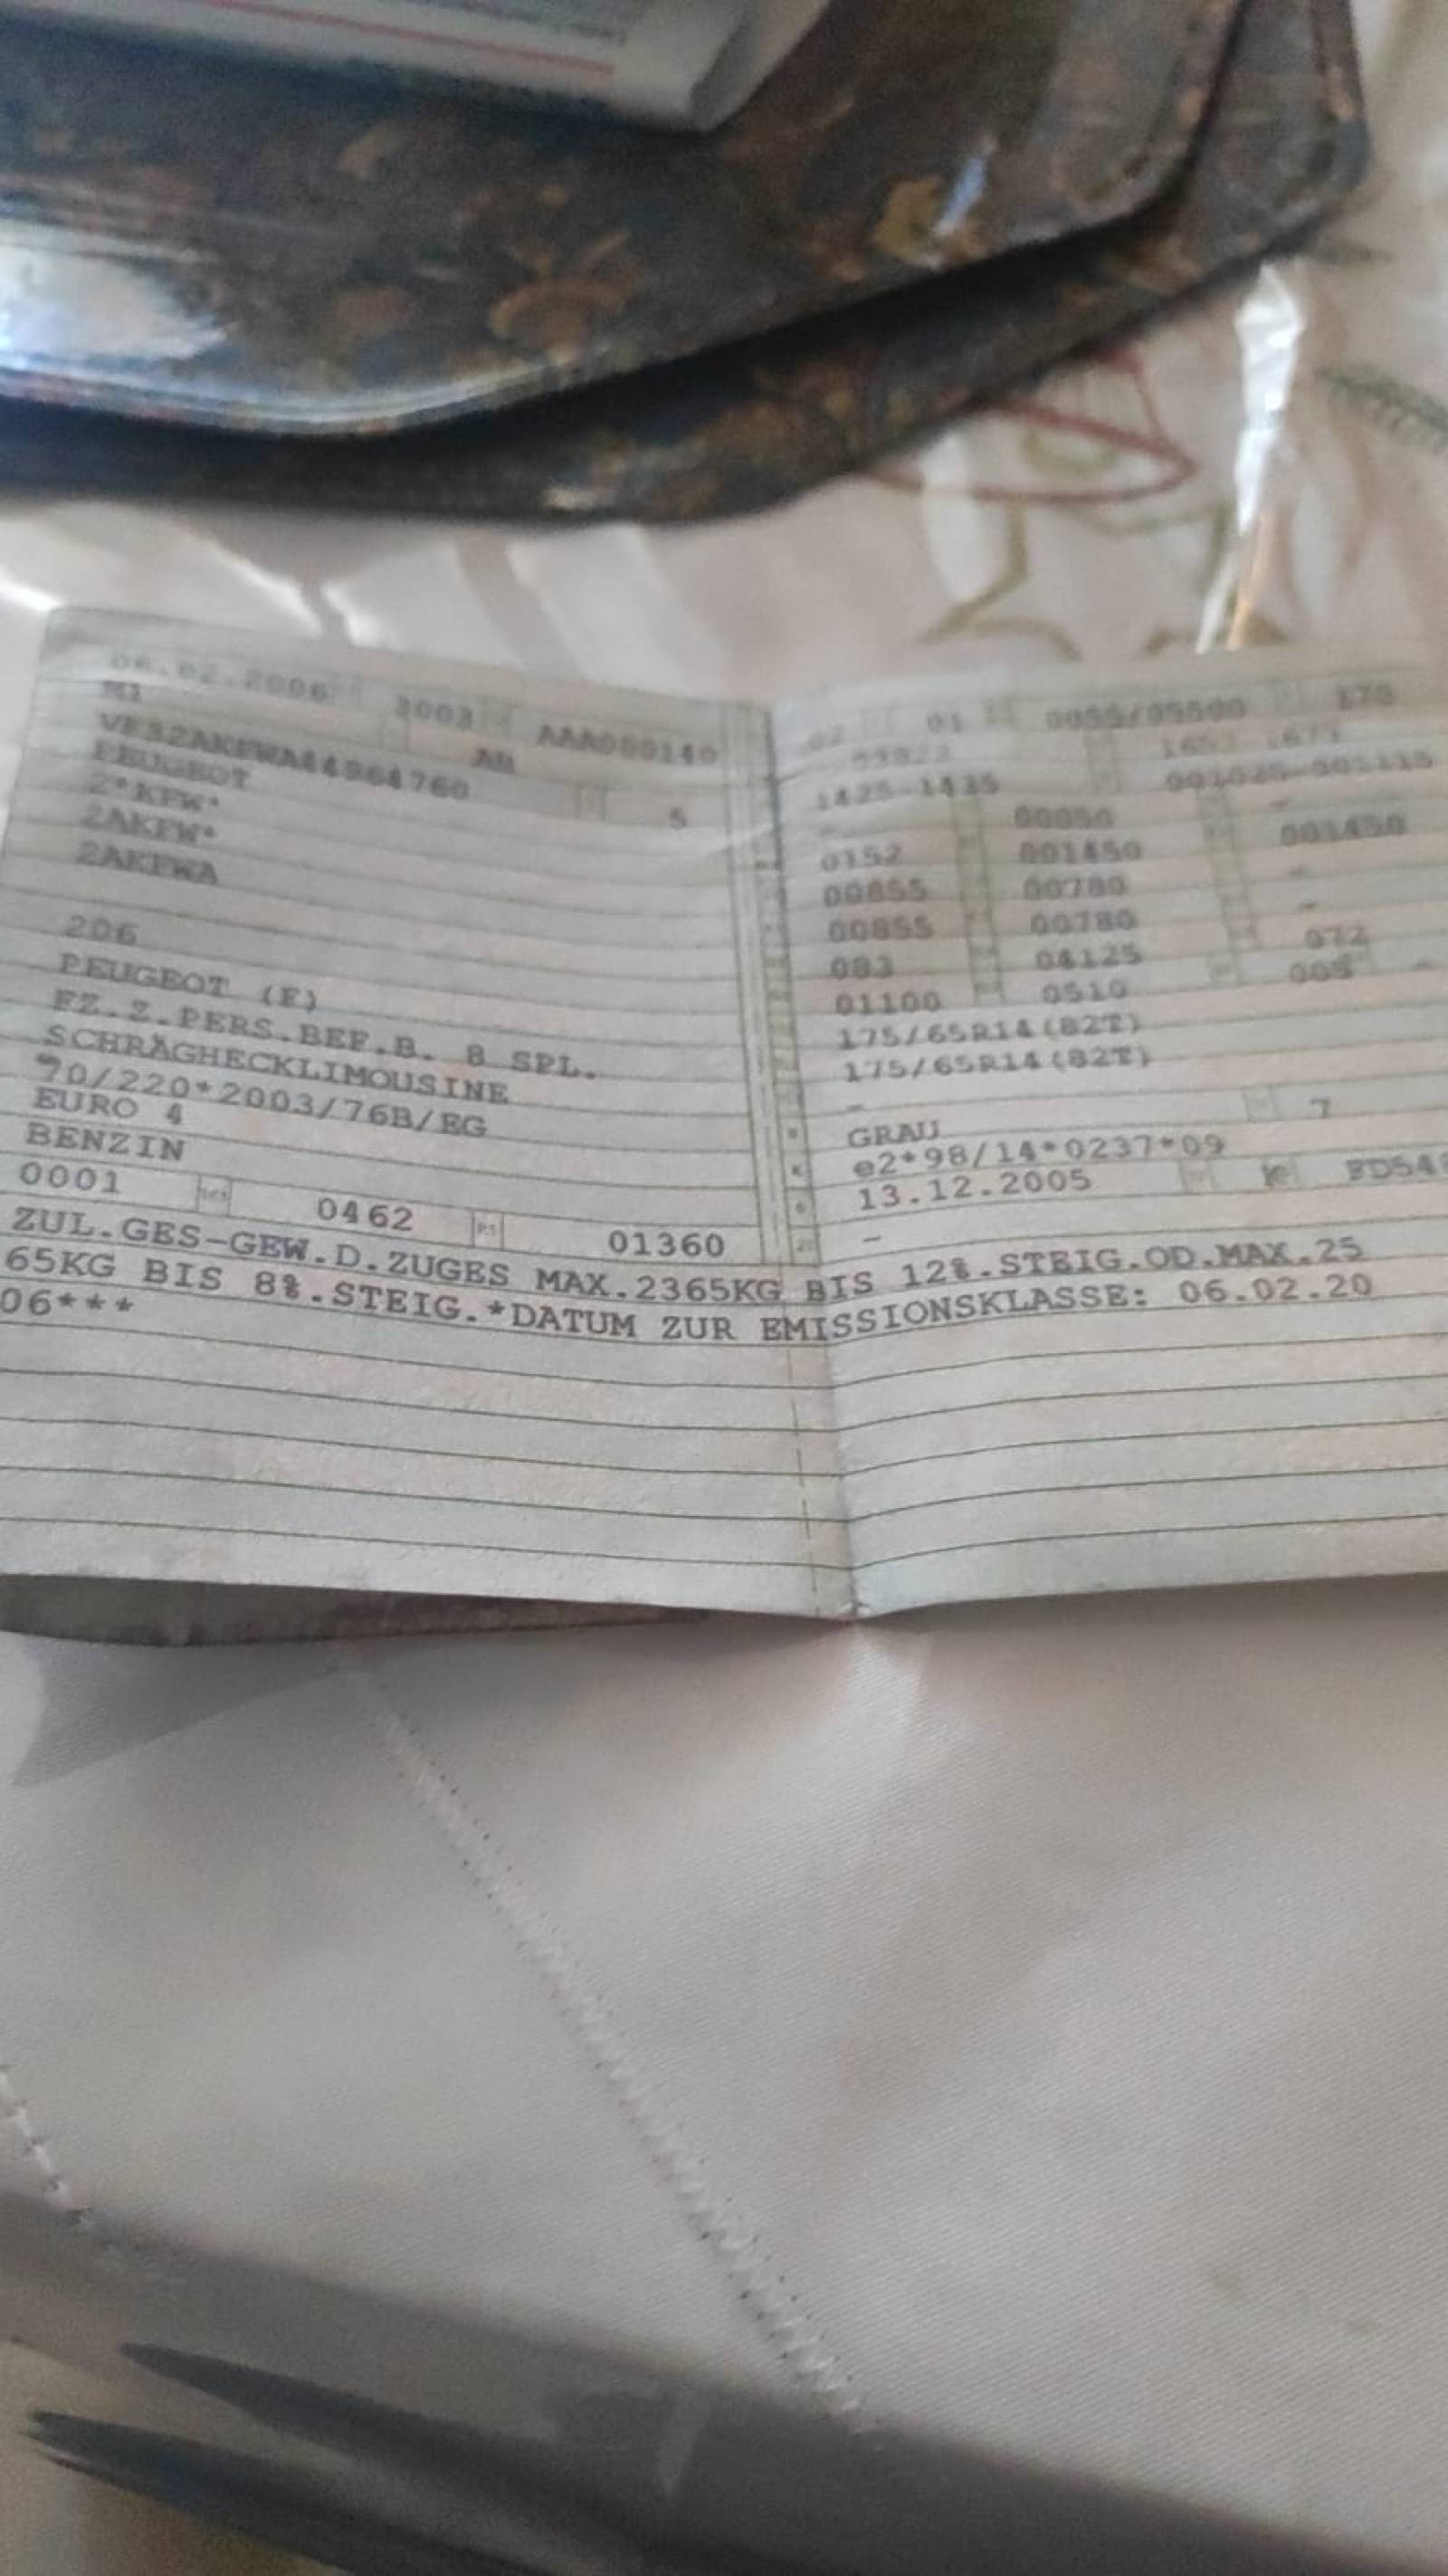 06.02.2006 3003 AAA000140
M1 AB
VF32AKFWA44964760 5
PEUGEOT
2*KFW*
2AKFW*
2AKFWA
206
PEUGEOT (F)
FZ.Z.PERS.BEF.B. 8 SPL.
SCHRÄGHECKLIMOUSINE
70/220*2003/76B/EG
EURO 4
BENZIN
0001 0462 01360
01 0055/05500 170
1425-1435
00850
0152 001450 001450
00855 00780 -
00855 00780 -
083 04125 072
01100 0510 005
175/65R14(82T)
175/65R14(82T)
-
GRAU 7
e2*98/14*0237*09
13.12.2005 K
-
ZUL.GES-GEW.D.ZUGES MAX.2365KG BIS 12%.STEIG.OD.MAX.25
65KG BIS 8%.STEIG.*DATUM ZUR EMISSIONSKLASSE: 06.02.20
06***